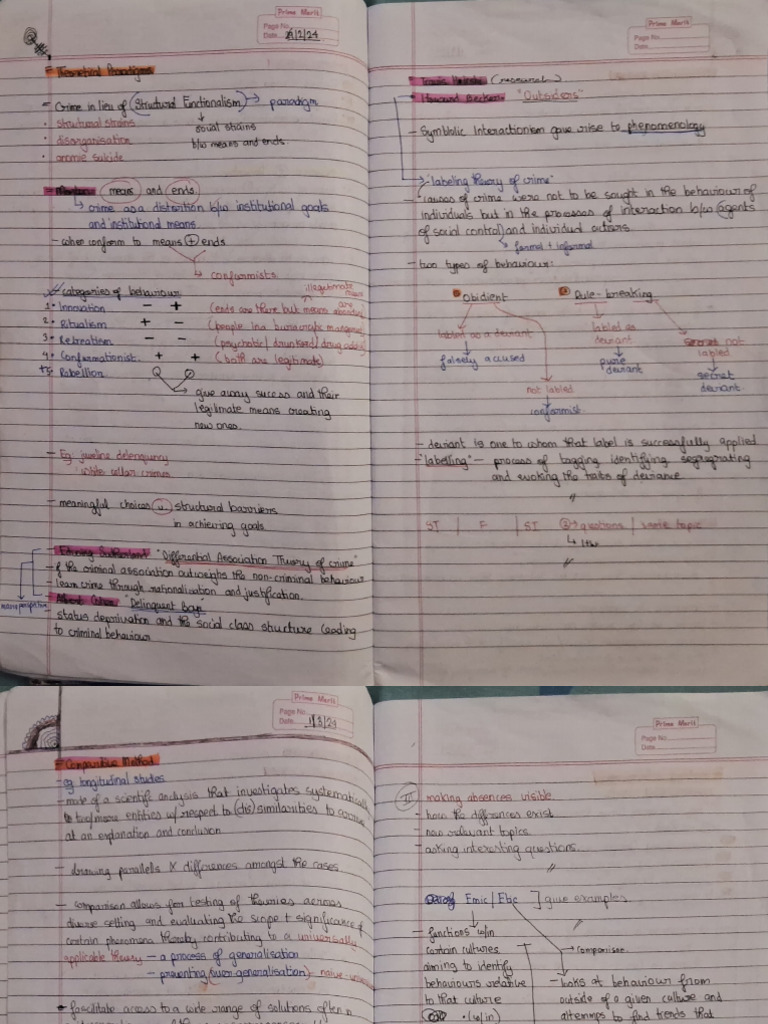 Prime Merit
Page No.
Date 21/2/24
Theoretical Paradigms
- Crime in lieu of (Structural Functionalism) → paradigm
• structural strains
social strains
• disorganisation
b/w means and ends.
• anomie suicide
- Merton: means and ends.
crime as a distortion b/w institutional goals
and institutional means.
- when conform to means (+) ends
conformists
categories of behaviour
illegitimate means
1• Innovation - + (ends are there but means are
2• Ritualism + - (people in a bureaucratic management
3• Retreatism - - (psychotic / drunkard / drug addicts)
4• Conformationist + + (both are legitimate)
5• Rebellion
give away sucess and their
legitimate means creating
new ones.
- Eg: juveline delenquency
white collar crimes
- meaningful choices v. structural barriers
in achieving goals
Sutherland "Differential Association Theory of crime"
- if the criminal association outweighs the non-criminal behaviour
- learn crime through rationalisation and justification.
Albert Cohen "Delinquent Boys"
status deprivation and the social class structure leading
to criminal behaviour
Prime Merit
Page No.
Date
Travis Hirschi
Howard Becker: "Outsiders"
- Symbolic Interactionism gave rise to phenomenology
"labeling theory of crime"
- causes of crime were not to be sought in the behaviour of
individuals but in the processes of interaction b/w (agents
of social control) and individual actors
formal + informal
- two types of behaviour:
Obidient
Rule-breaking
labled as a deviant
labled as
deviant
secret not
labled
falsely accused
pure
deviant
secret
deviant.
not labled
conformist.
- deviant is one to whom that label is successfully applied
- "labelling" - process of tagging, identifying, segregrating
and evoking the traits of deviance
ST | F | ST ② → questions / same topic
Prime Merit
Page No.
Date 1/3/24
Comparitive Method
- eg longitudinal studies
- mode of a scientific analysis that investigates systematically
two/more entities w/respect to (dis)similarities to
at an explanation and conclusion
- drawing parallels X differences amongst the cases
- comparison allows for testing of theories across
diverse setting and evaluating the scope + significance of
certain phenomena thereby contributing to a universally
applicable theory - a process of generalisation
- preventing (over-generalisation) -
- facilitate access to a wide range of solutions often
Prime Merit
Page No.
Date
III making absences visible.
- how the differences exist
- non relevant topics.
- asking interesting questions.
Emic / Etic ] give examples.
- functions w/in
certain cultures
aiming to identify
behaviours relative
to that culture
• (w/in)
comparison
- looks at behaviour from
outside of a given culture and
attemmps to find trends that